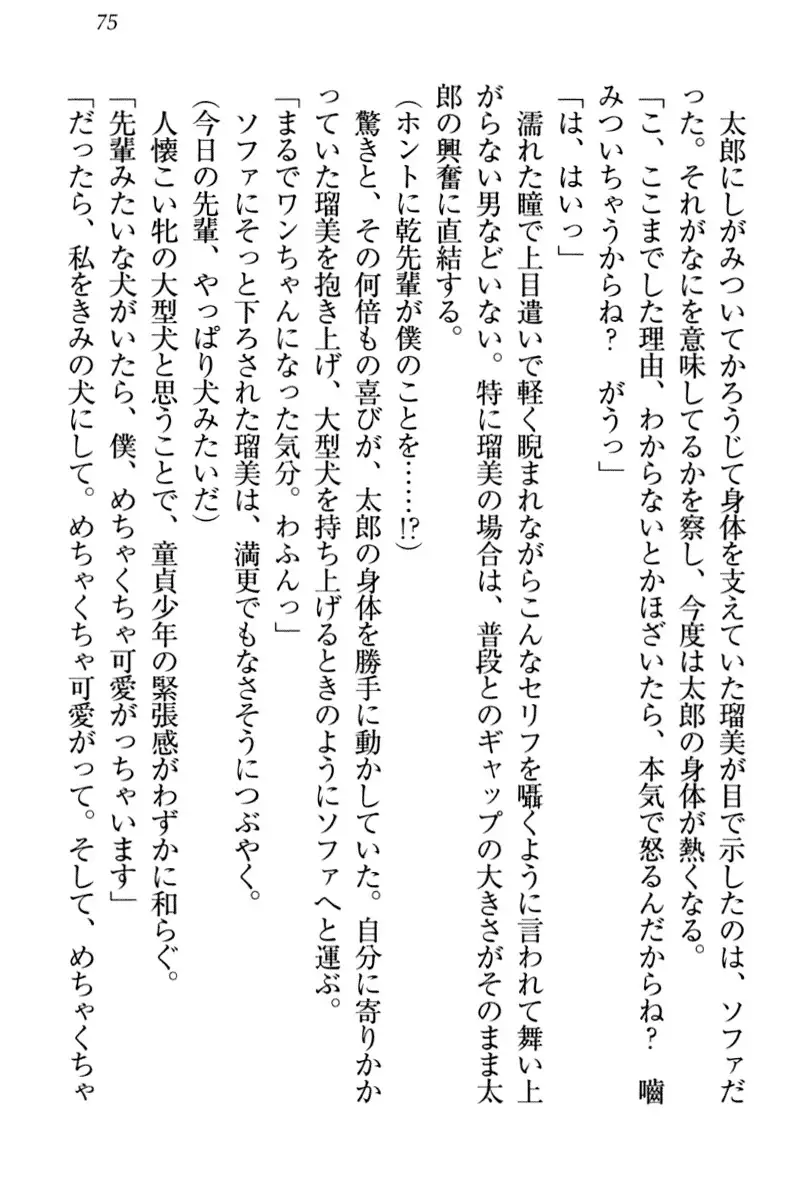 75
太郎にしがみついてかろうじて身体を支えていた瑠美が目で示したのは、ソファだ
った。それがなにを意味してるかを察し、今度は太郎の身体が熱くなる。
「こ、ここまでした理由、わからないとかほざいたら、本気で怒るんだからね？　嚙
みついちゃうからね？　がうっ」
「は、はいっ」
濡れた瞳で上目遣いで軽く睨まれながらこんなセリフを囁くように言われて舞い上
がらない男などいない。特に瑠美の場合は、普段とのギャップの大きさがそのまま太
郎の興奮に直結する。
（ホントに乾先輩が僕のことを……!?）
驚きと、その何倍もの喜びが、太郎の身体を勝手に動かしていた。自分に寄りかか
っていた瑠美を抱き上げ、大型犬を持ち上げるときのようにソファへと運ぶ。
「まるでワンちゃんになった気分。わふんっ」
ソファにそっと下ろされた瑠美は、満更でもなさそうにつぶやく。
（今日の先輩、やっぱり犬みたいだ）
人懐こい牝の大型犬と思うことで、童貞少年の緊張感がわずかに和らぐ。
「先輩みたいな犬がいたら、僕、めちゃくちゃ可愛がっちゃいます」
「だったら、私をきみの犬にして。めちゃくちゃ可愛がって。そして、めちゃくちゃ